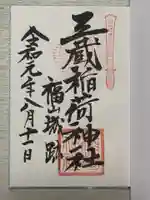 三蔵稲荷神社
福山城跡
令和元年八月十一日